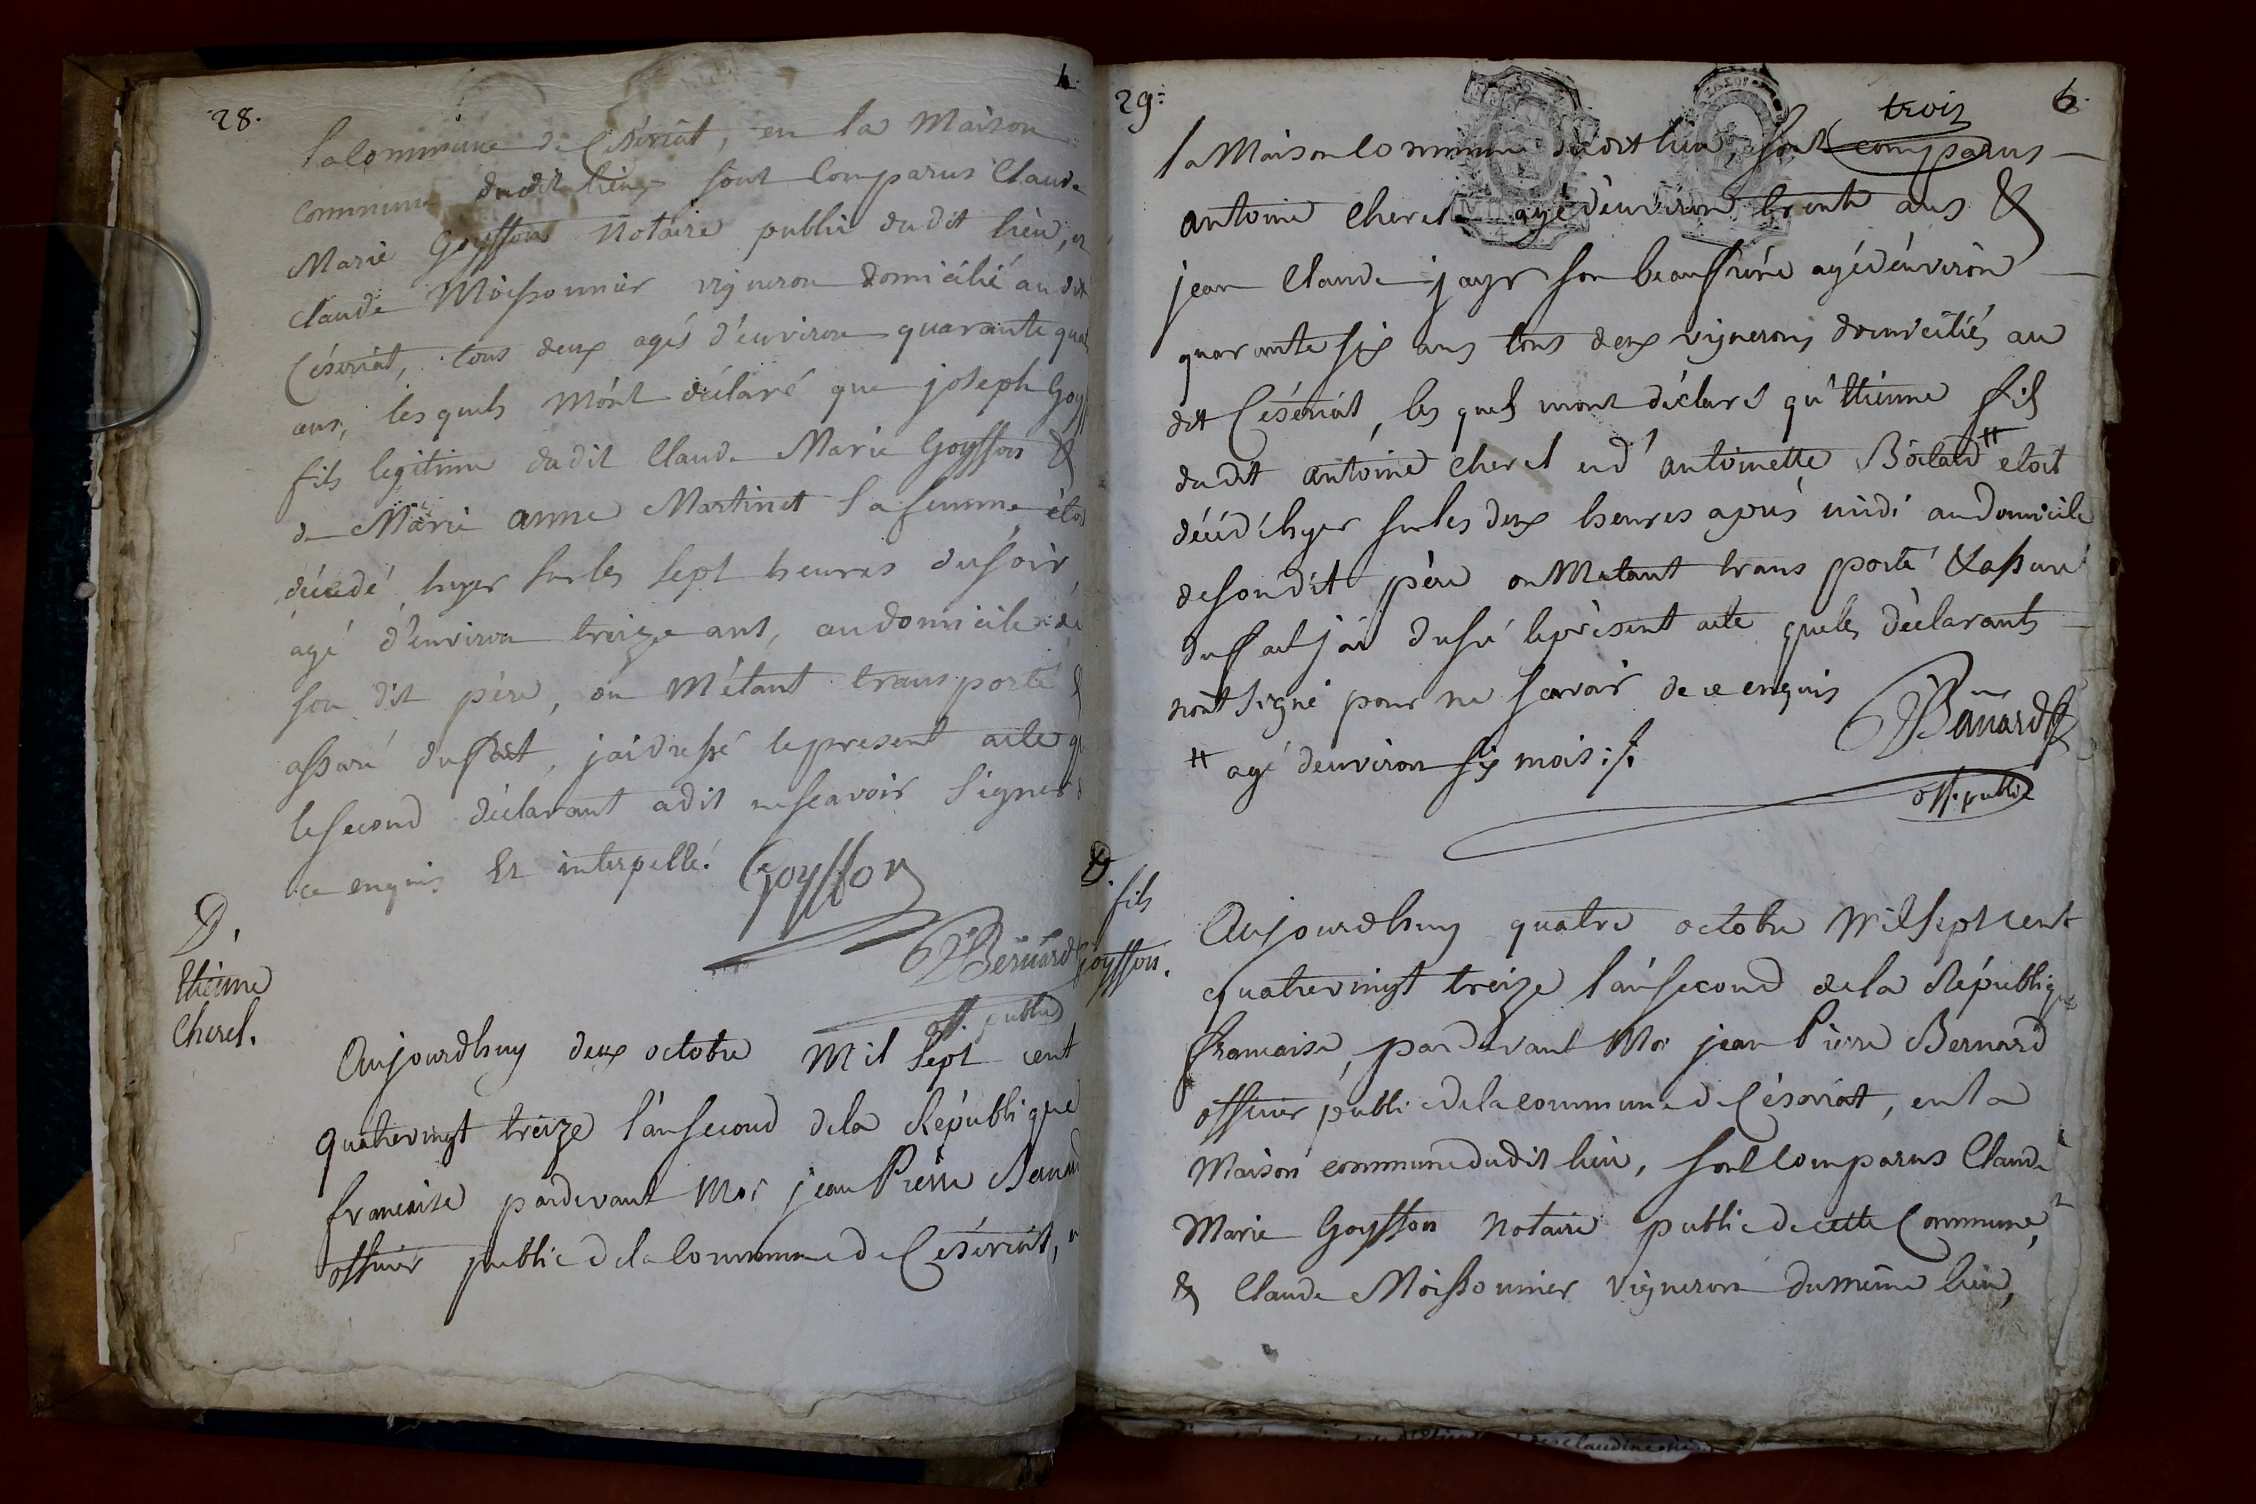 28.
la Commune de Céseriat, en la Maison
Commune dudit lieu, sont Comparus Claude
Marie Goyffon Notaire public dudit lieu, et
Claude Moissonnier vigneron domicilié au dit
Céseriat, tous deux agés d'environ quarante quat
ans, lesquels m'ônt déclaré que joseph Goyf
fils legitime dudit Claude Marie Goyffon &
de Marie anne Martinet sa femme êtoi
décedé hyer sur les sept heures du soir,
agé d'environ treize ans, au domicile de
son dit père, ou m'étant transporté &
assuré du fait, j'ai dressé le present acte q
le second déclarant a dit ne scavoir signer d
ce enquis Et interpellé. Goyffon
Bernard
off. public
D.
Etienne
Cherel.
Aujourdhuy deux octobre Mil Sept cent
quatrevingt treize l'an second de la République
francaise pardevant Moi jean Pierre Bernard
officier public de la Commune de Céseriat,
29.
6.
trois
la Maison Commune dudit lieu, sont comparus
antoine Cherel agé d'environ trente ans &
jean Claude jayr son beaufrére agé d'environ
quarante six ans tous deux vignerons domiciliés au
dit Céseriat, les quels mont déclaré qu'Etienne fils
dudit antoine Cherel et d'antoinette Boilard # etoit
décédé hyer sur les deux heures aprés midi au Domicile
de son dit père ou M'etant transporté & assuré
du fait j'ai dressé le présent acte que les déclarants
n'ont signé pour ne scavoir de ce enquis
Bernard
# agé denviron six mois ./.
off. public
D.
fils
Goyffon.
Aujourdhuy quatre octobre Mil Sept cent
quatrevingt treize l'an second de la République
francaise, pardevant Moi jean Pierre Bernard
officier public de la commune de Céseriat, en la
Maison commune dudit lieu, sont Comparus Claude
Marie Goyffon Notaire public de cette Commune,
& Claude Moissonnier vigneron du même lieu,